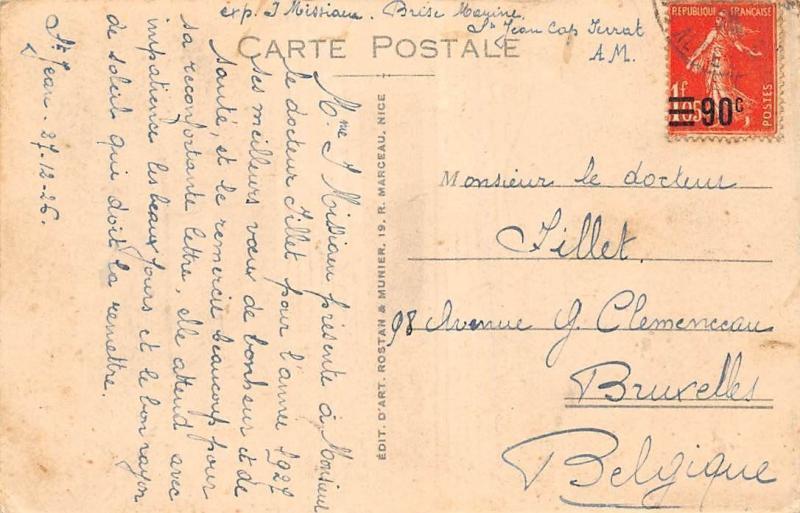 exp. J Missiaen. Brise Marine.
St Jean Cap Ferrat
A.M.
CARTE POSTALE
REPUBLIQUE FRANÇAISE
1f
05
90c
POSTES
Mme J Missiaen présente à Monsieur
le docteur Jillet pour l'année 1927
ses meilleurs vœux de bonheur et de
santé, et le remercie beaucoup pour
sa reconfortante lettre, elle attend avec
impatience les beaux jours et le bon rayon
de soleil qui doit la remettre.
St Jean. 27-12-26.
ÉDIT. D'ART. ROSTAN & MUNIER, 19, R. MARCEAU, NICE
Monsieur le docteur
Jillet.
98 Avenue G. Clemenceau
Bruxelles
Belgique